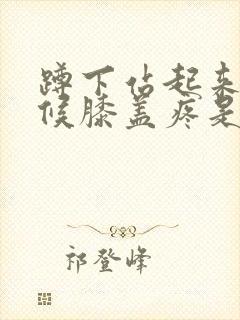 蹲下估起来
候膝盖疼是
祁登峰